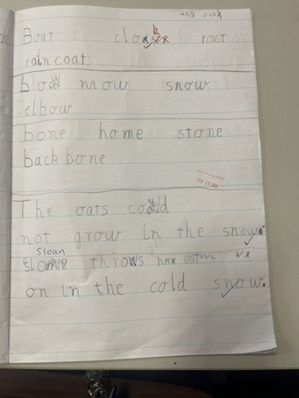 Boat cloak roast
raincoat
blow mow snow
elbow
bone home stone
backbone
The oats could
not grow in the snow.
Sloan
throws
on in the cold snow.